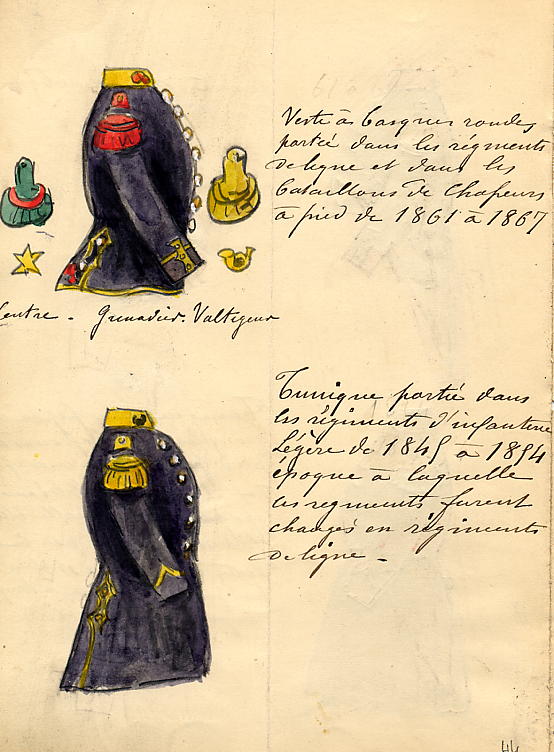 Veste à basques rondes
portée dans les régiments
de ligne et dans les
bataillons de Chasseurs
à pied de 1861 à 1867
Centre - Grenadier. Voltigeur
Tunique portée dans
les régiments d'infanterie
Légère de 1845 à 1854
époque à laquelle
ces regiments furent
changés en régiments
de ligne -
44